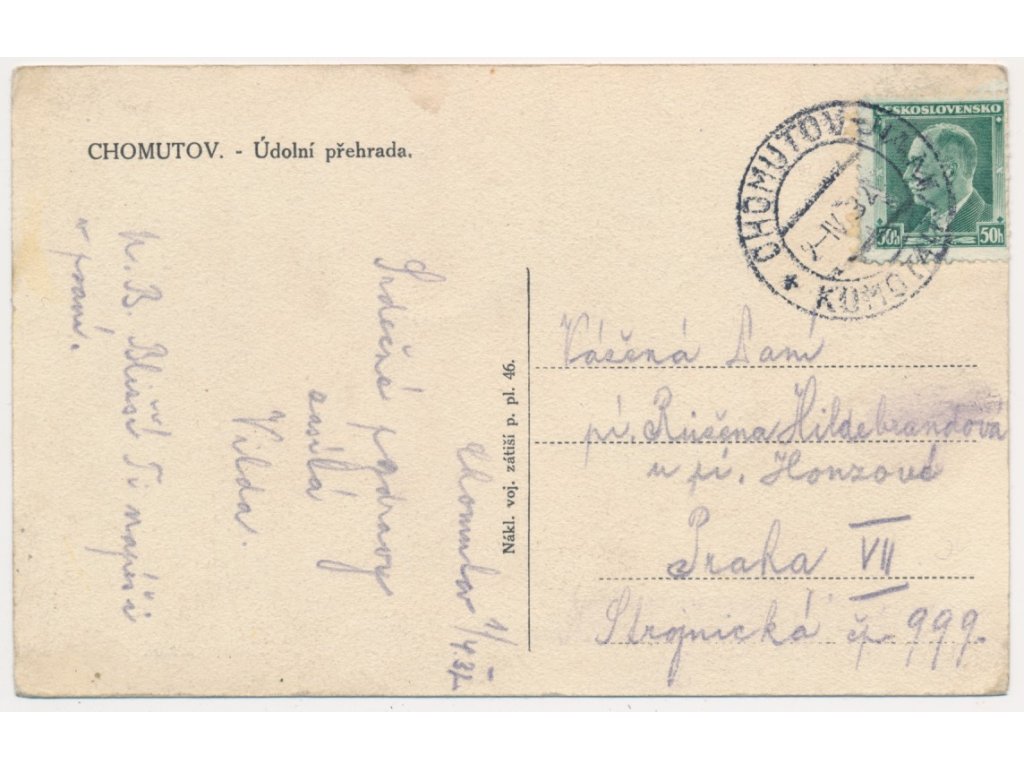 CHOMUTOV. - Údolní přehrada.
ČESKOSLOVENSKO
50h 50h
CHOMUTOV
Chomutov 1/4.32
Srdečné pozdravy
zasílá
Vilda.
N. B. Bližší Ti napíši
v psaní.
Nákl. voj. zátiší p. pl. 46.
Vážená Paní
pí. Růžena Hildebrandová
u pí. Honzové
Praha VII
Strojnická čp. 999.